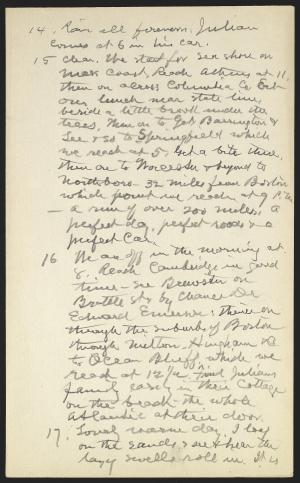 14. Rain all forenoon. Julian
comes at 6 in his car.
15 Clear. We start for sea shore on
Mass Coast, Reach Athens at 11,
then on across Columbia Co. Eat
our lunch near state line
beside a little trout under the
trees. Then on to Gt Barrington &
Lee & so to Springfield which
we reach at 5. Get a bite there,
then on to Worcester & beyond to
Northboro – 32 miles from Boston
which point we reach at 9 P.M.
– a run of over 200 miles, a
perfect day, perfect roads & a
perfect car.
16 We are off in the morning at
8. Reach Cambridge in good
time – see Brewster on
Brattle St, by chance Dr
Edward Emerson; then on
through the suburbs of Boston
through Milton, Hingham &c
to Ocean Bluff which we
reach at 12½. Find Julian's
family early in their cottage
on the beach – the whole
Atlantic at their door.
17. Lovely warm day. I lay
on the sands & see & hear the
lazy swells roll in. It is